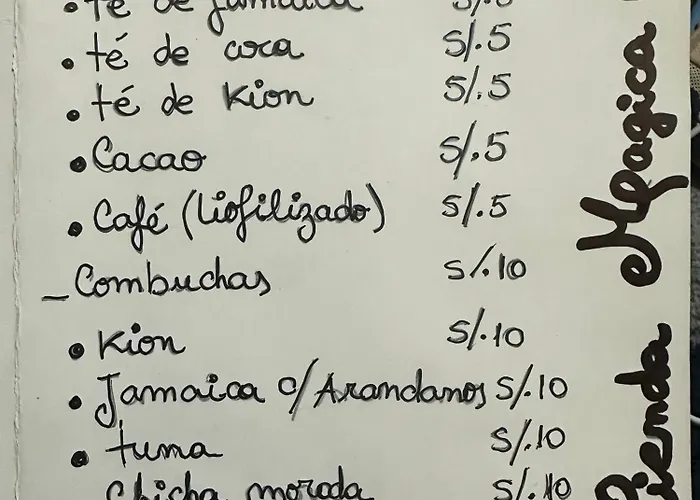 • té de Jamaica S/.5
• té de coca S/.5
• té de Kion S/.5
• Cacao S/.5
• Café (Liofilizado) S/.5
_ Combuchas S/.10
• Kion S/.10
• Jamaica c/Arandanos S/.10
• tuna S/.10
Chicha morada S/.10
Mágica